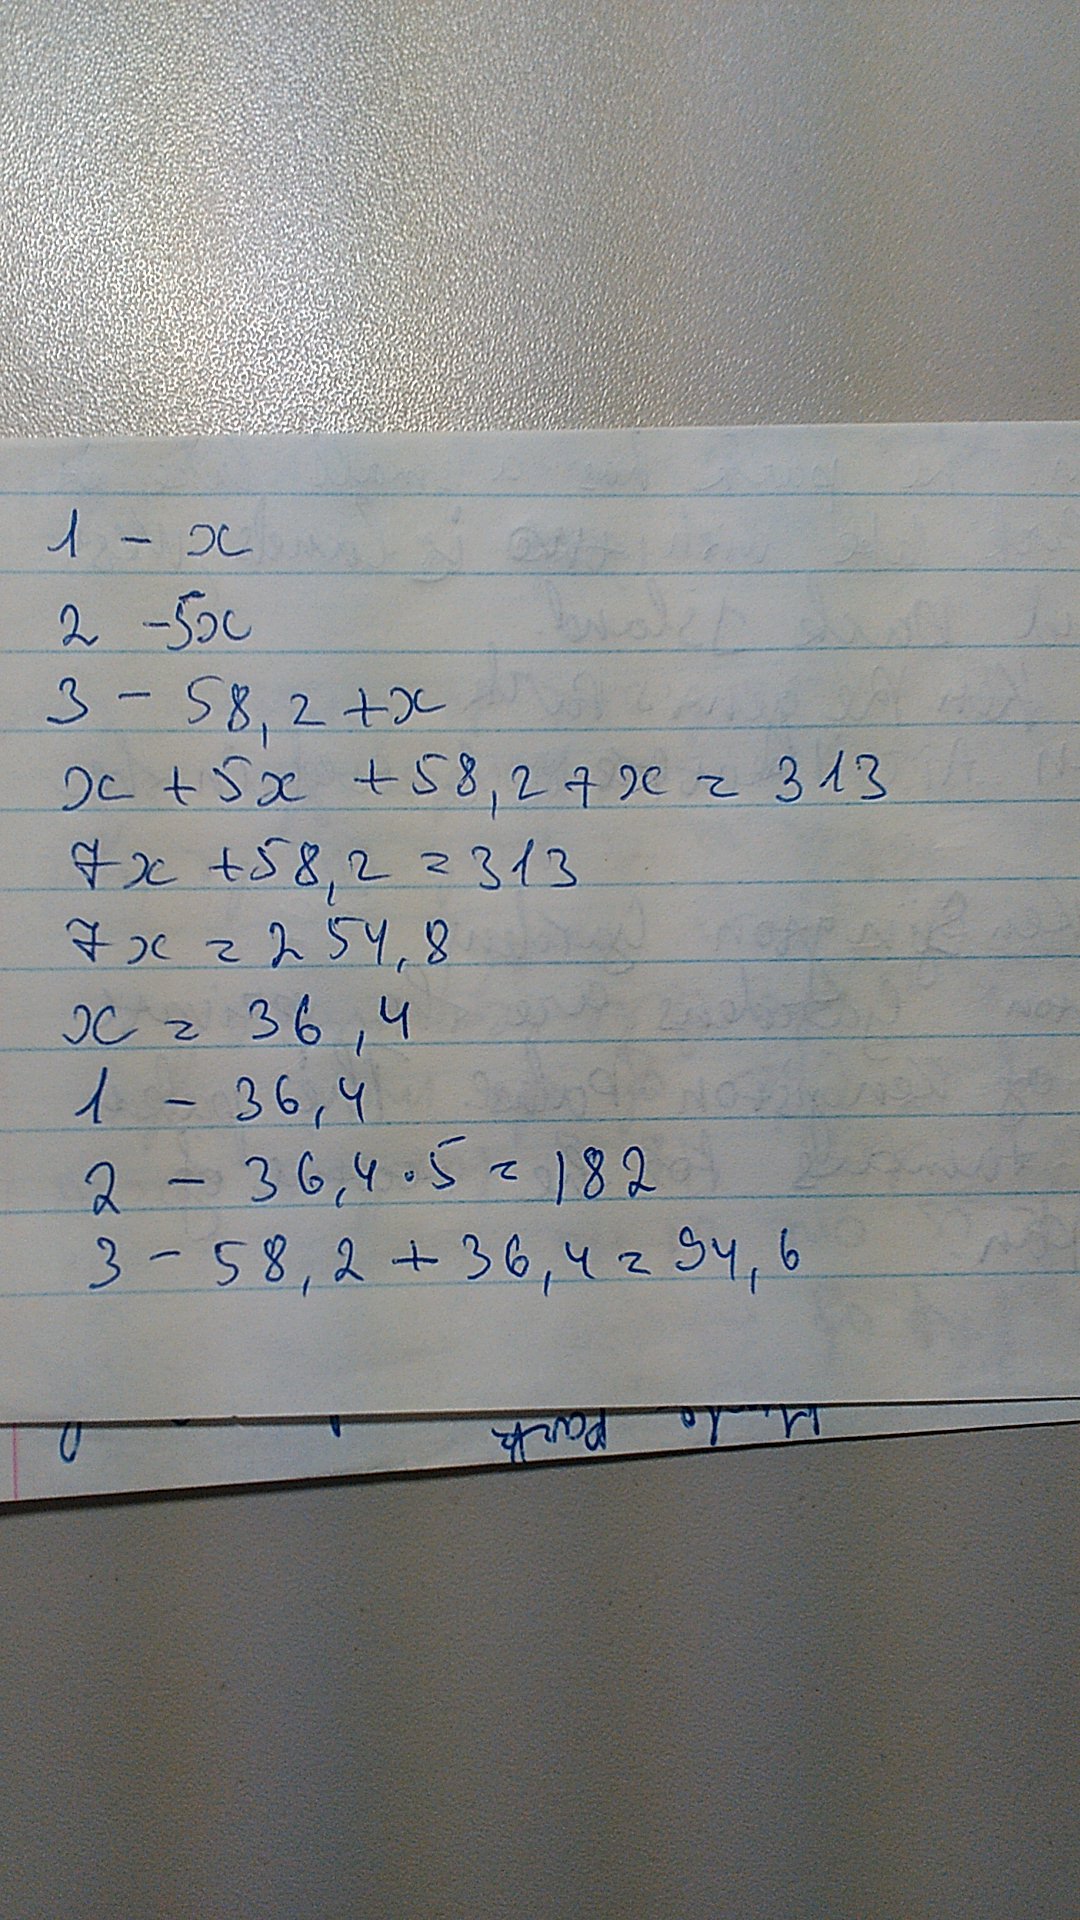 1 - x
2 -5x
3 - 58,2 +x
x + 5x + 58,2 + x = 313
7x + 58,2 = 313
7x = 254,8
x = 36,4
1 - 36,4
2 - 36,4 · 5 = 182
3 - 58,2 + 36,4 = 94,6
Park